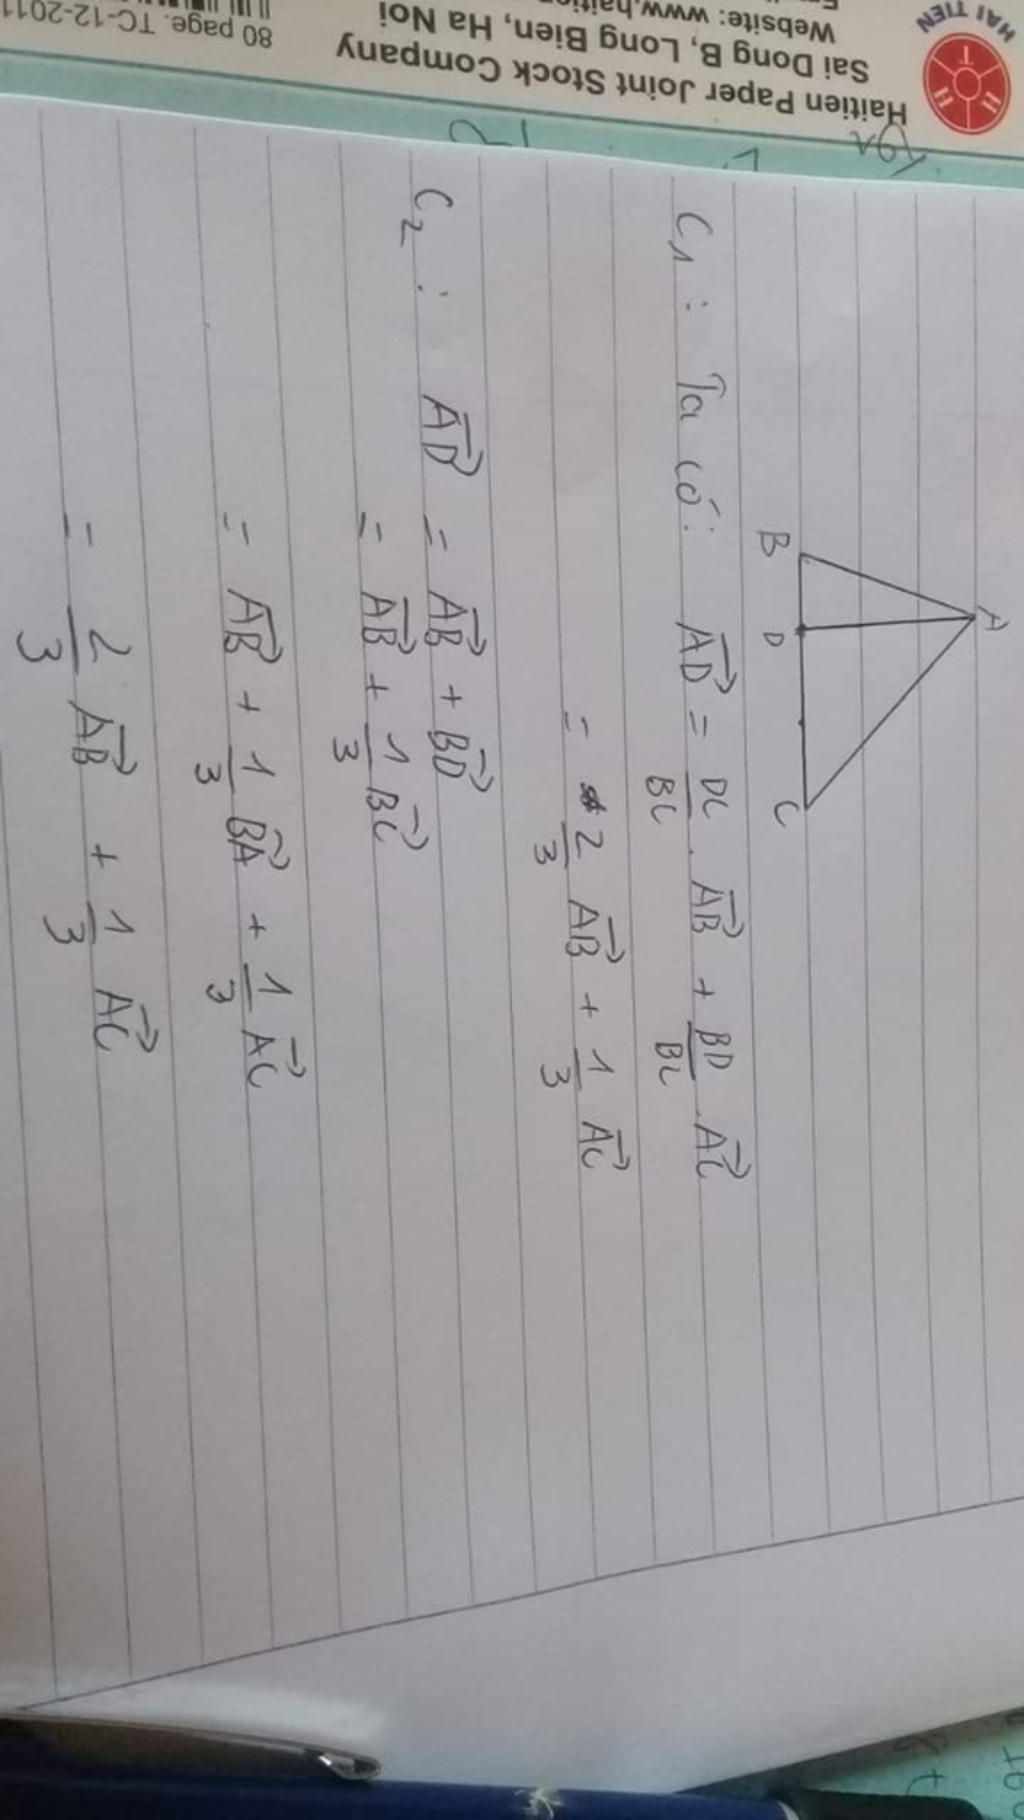 HAI TIEN
H H T
Haitien Paper Joint Stock Company
Sai Dong B, Long Bien, Ha Noi
Website: www.haitien
80 page. TC-12-2011
A
B D C
C₁ : Ta có: AD→ = DC/BC . AB→ + BD/BC . AC→
= 2/3 AB→ + 1/3 AC→
C₂ : AD→ = AB→ + BD→
= AB→ + 1/3 BC→
= AB→ + 1/3 BA→ + 1/3 AC→
= 2/3 AB→ + 1/3 AC→